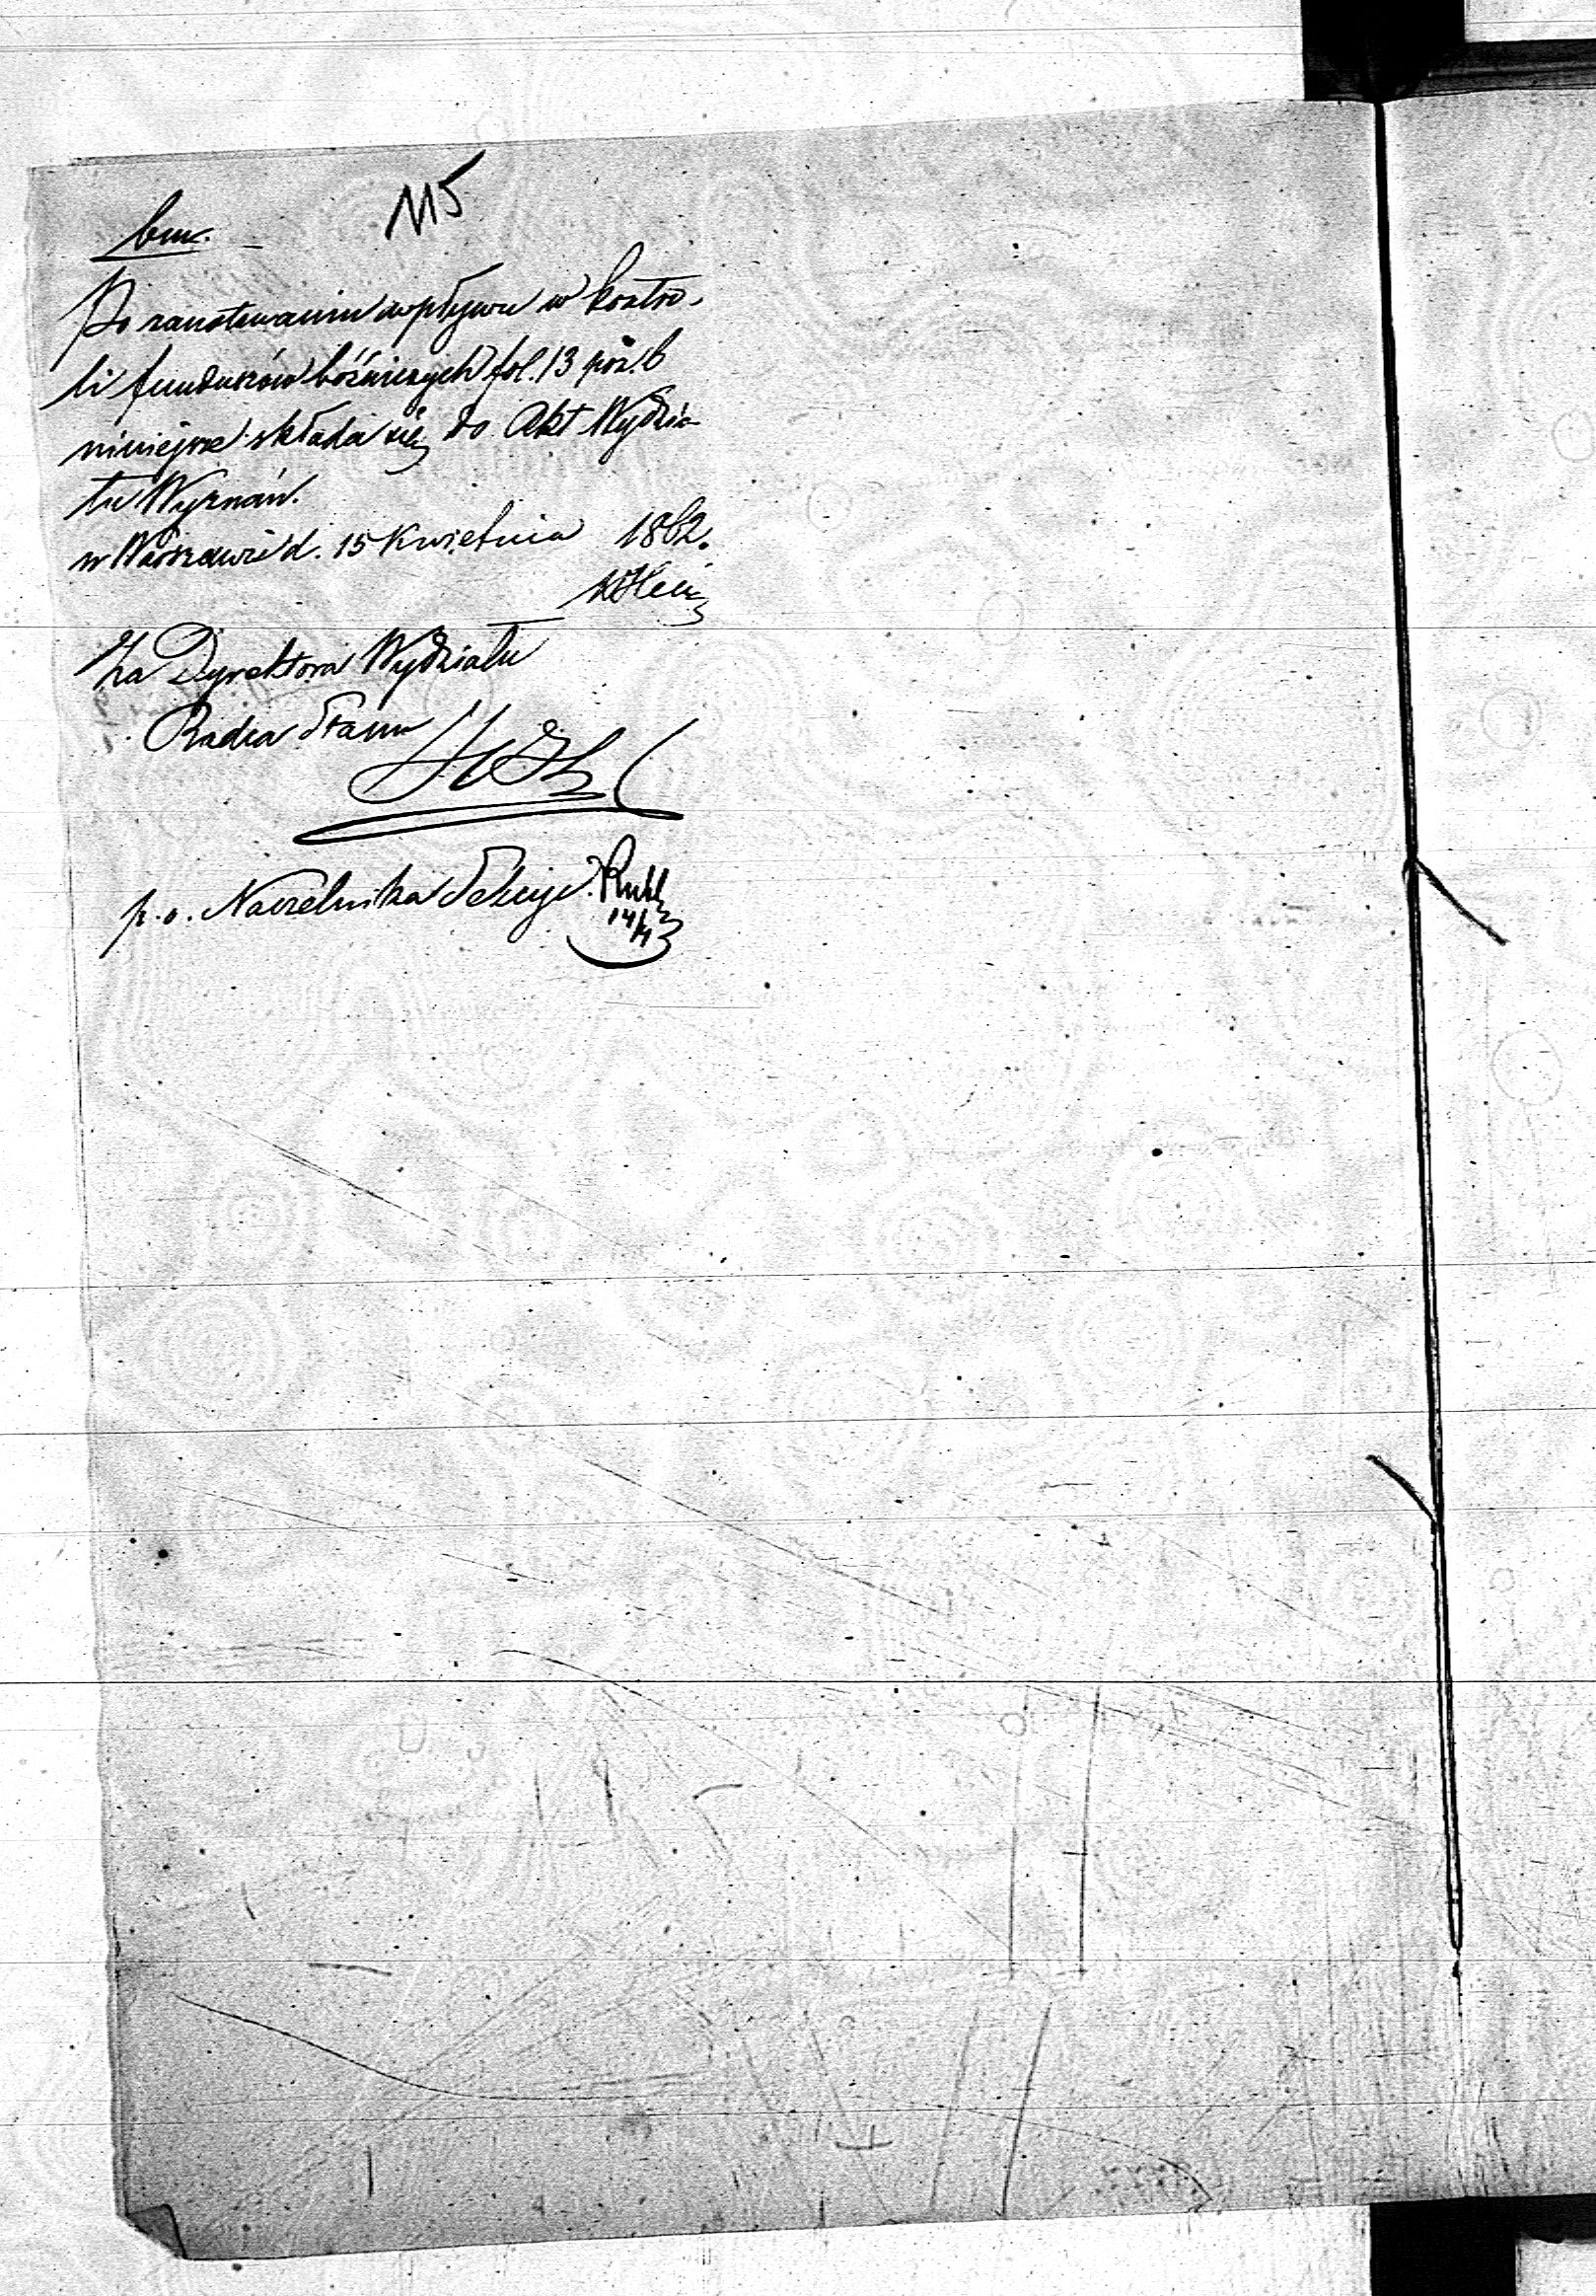 115
bm.
Po zanotowaniu wpływu w kontro-
li funduszów bóżniczych fol. 13 poz. 6
niniejsze składa się do Akt Wydzia-
łu Wyznań.
w Warszawie d. 15 Kwietnia 1862.
Za Dyrektora Wydziału
Radca Stanu
p. o. Naczelnika Sekcyi.
14/4